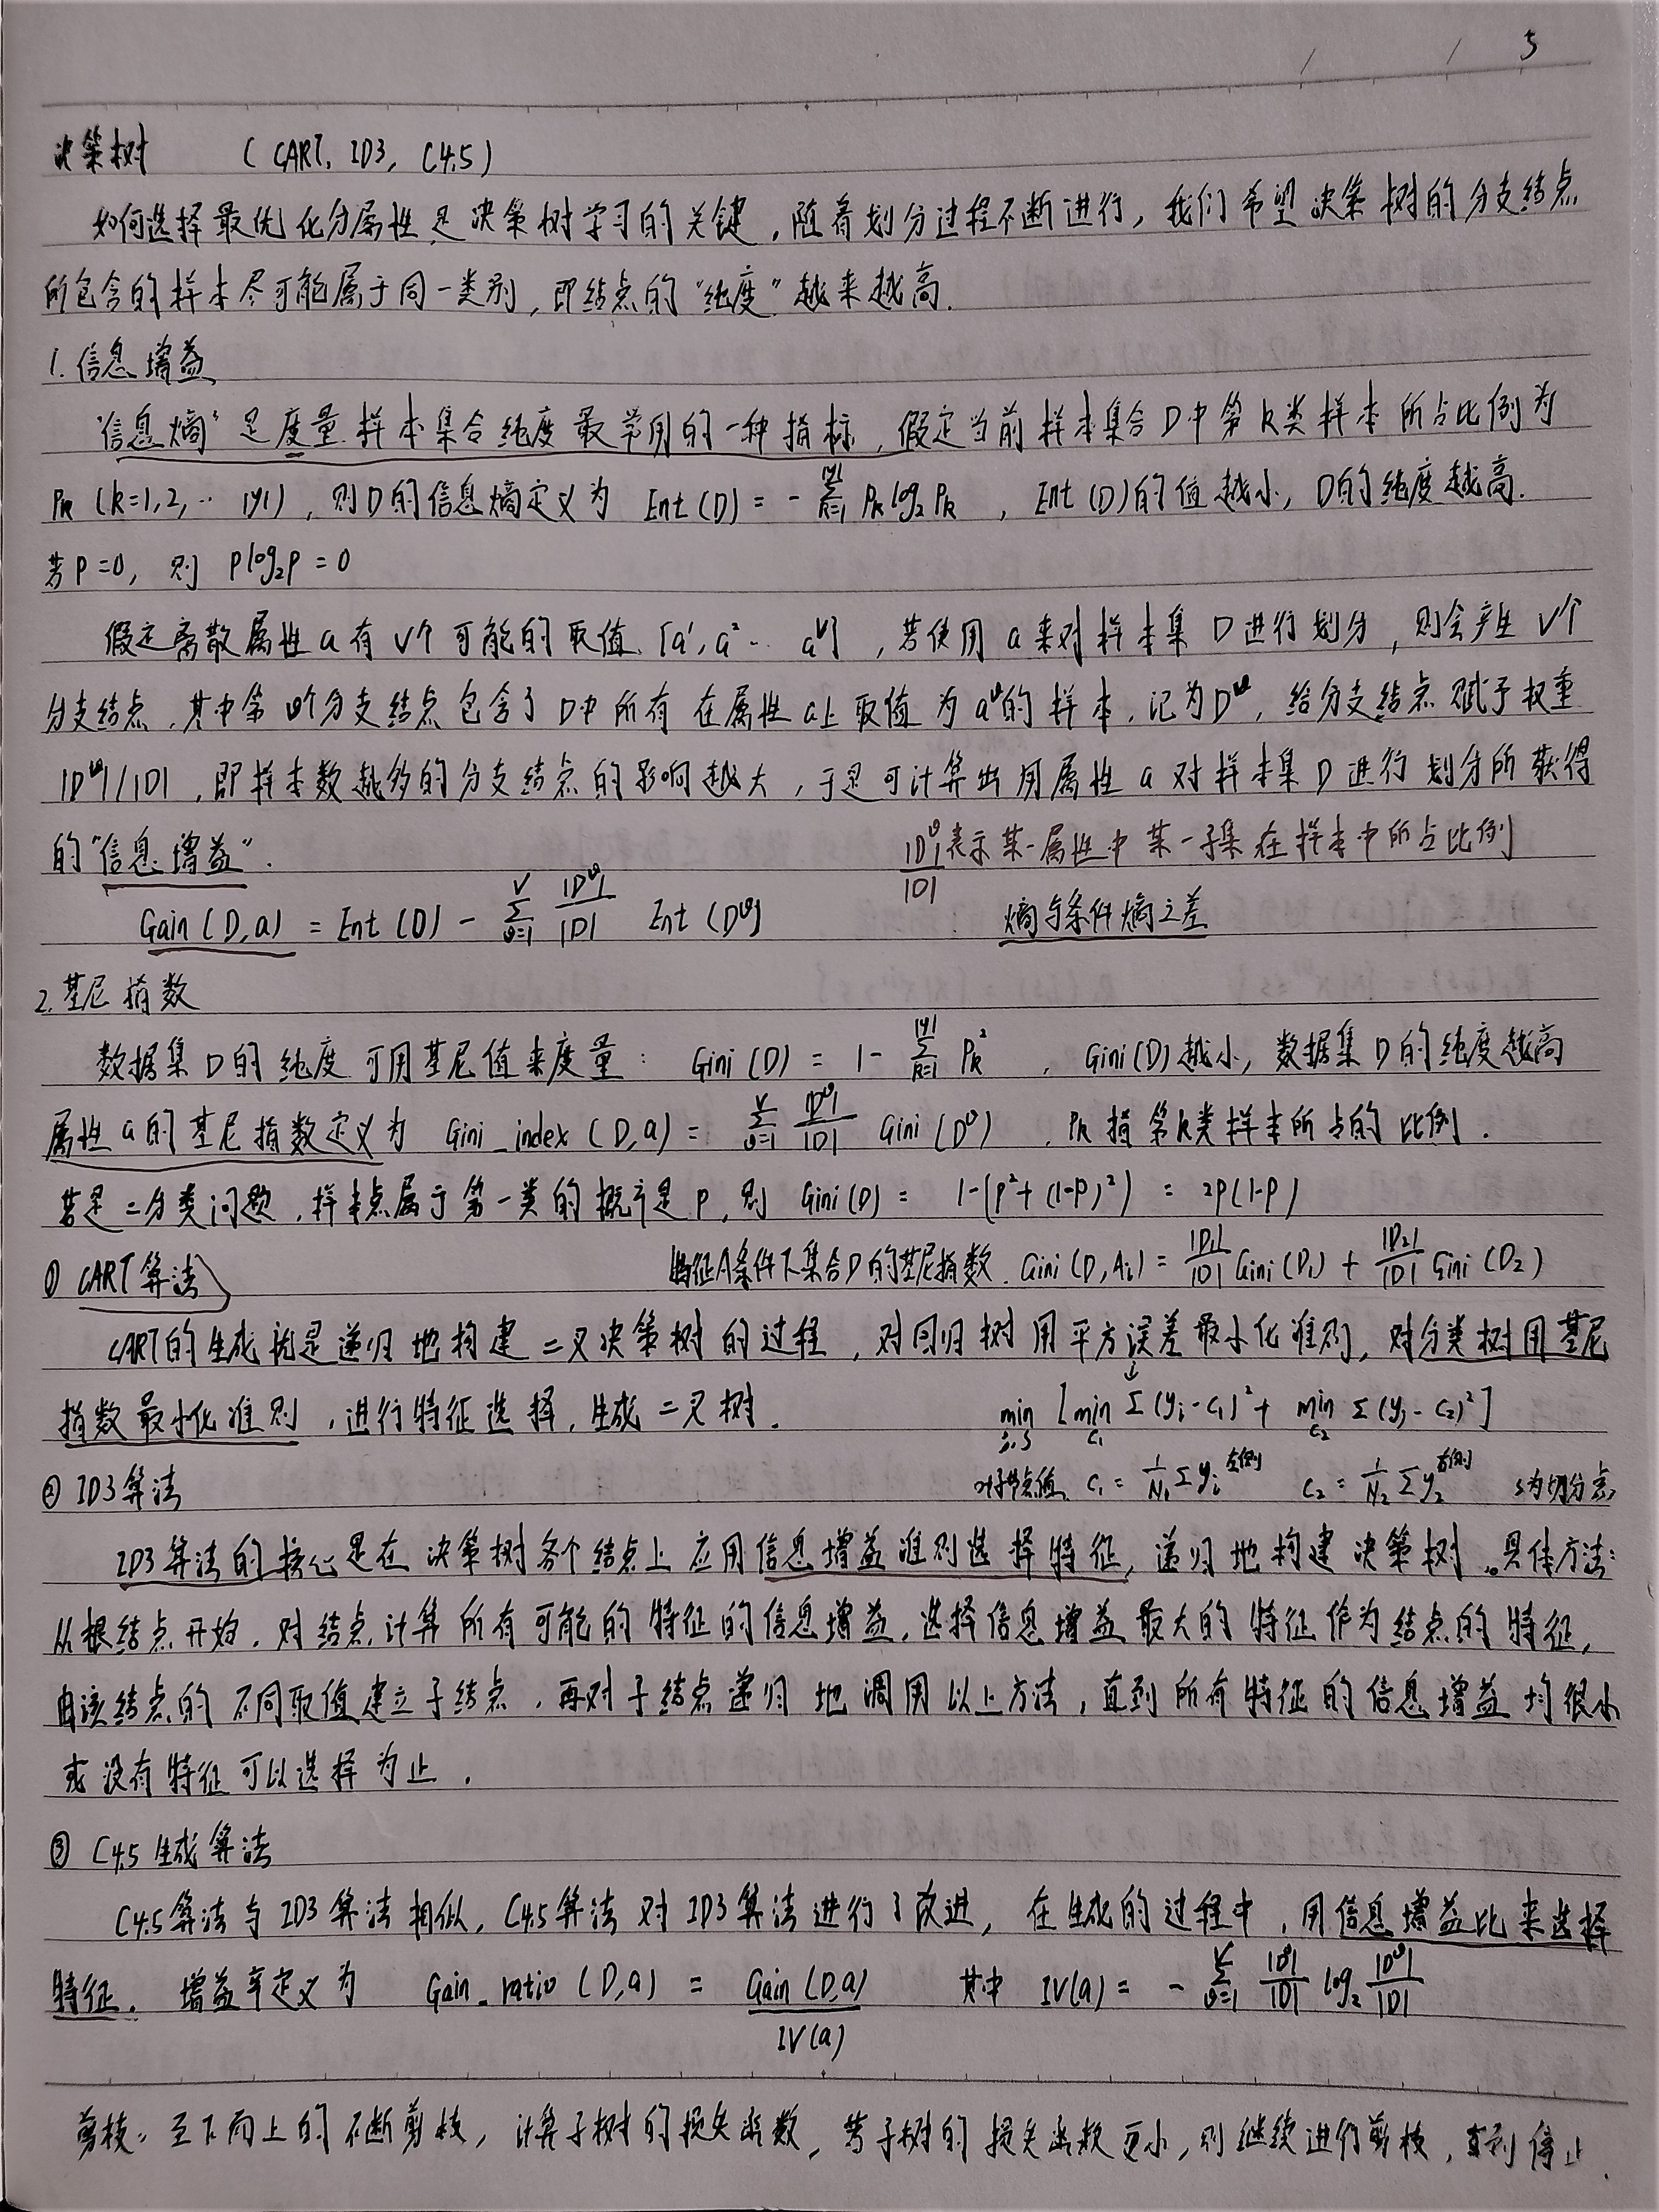 5
决策树 (CART, ID3, C4.5)
如何选择最优化分属性是决策树学习的关键,随着划分过程不断进行,我们希望决策树的分支结点
所包含的样本尽可能属于同一类别,即结点的“纯度”越来越高.
1.信息增益
“信息熵”是度量样本集合纯度最常用的一种指标,假定当前样本集合D中第k类样本所占比例为
Pk (k=1,2,… |y|),则D的信息熵定义为 Ent(D) = -∑_{k=1}^{|y|} Pk log₂ Pk , Ent(D)的值越小, D的纯度越高.
若P=0, 则 Plog₂P = 0
假定离散属性a有V个可能的取值 {a¹,a²… a^V} ,若使用a来对样本集D进行划分,则会产生V个
分支结点,其中第v个分支结点包含了D中所有在属性a上取值为a^v的样本,记为D^v, 给分支结点赋予权重
|D^v|/|D| ,即样本数越多的分支结点的影响越大,于是可计算出用属性a对样本集D进行划分所获得
的“信息增益”. |D^v|/|D| 表示某一属性中某一子集在样本中所占比例
Gain(D,a) = Ent(D) - ∑_{v=1}^{V} |D^v|/|D| Ent(D^v) 熵与条件熵之差
2.基尼指数
数据集D的纯度可用基尼值来度量: Gini(D) = 1-∑_{k=1}^{|y|} Pk² , Gini(D)越小, 数据集D的纯度越高
属性a的基尼指数定义为 Gini_index(D,a) = ∑_{v=1}^{V} |D^v|/|D| Gini(D^v) , Pk指第k类样本所占的比例.
若是二分类问题,样本点属于第一类的概率是p, 则 Gini(D) = 1-(p²+(1-p)²) = 2p(1-p)
特征A条件下集合D的基尼指数 Gini(D,Ai) = |D₁|/|D| Gini(D₁) + |D₂|/|D| Gini(D₂)
① CART算法
CART的生成就是递归地构建二叉决策树的过程,对回归树用平方误差最小化准则, 对分类树用基尼
指数最小化准则,进行特征选择,生成二叉树. min_{j,s} [min_{c₁} ∑(yi-c₁)² + min_{c₂} ∑(yi-c₂)²]
② ID3算法 叶子节点值 c₁ = 1/N₁ ∑yi^{左侧} c₂ = 1/N₂ ∑y₂^{右侧} s为切分点
ID3算法的核心是在决策树各个结点上应用信息增益准则选择特征,递归地构建决策树。具体方法:
从根结点开始,对结点计算所有可能的特征的信息增益,选择信息增益最大的特征作为结点的特征,
由该结点的不同取值建立子结点,再对子结点递归地调用以上方法,直到所有特征的信息增益均很小
或没有特征可以选择为止.
③ C4.5生成算法
C4.5算法与ID3算法相似, C4.5算法对ID3算法进行了改进, 在生成的过程中,用信息增益比来选择
特征. 增益率定义为 Gain_ratio(D,a) = Gain(D,a)/IV(a) 其中 IV(a) = -∑_{v=1}^{V} |D^v|/|D| log₂ |D^v|/|D|
剪枝: 至下而上的不断剪枝, 计算子树的损失函数, 若子树的损失函数更小,则继续进行剪枝,直到停止.